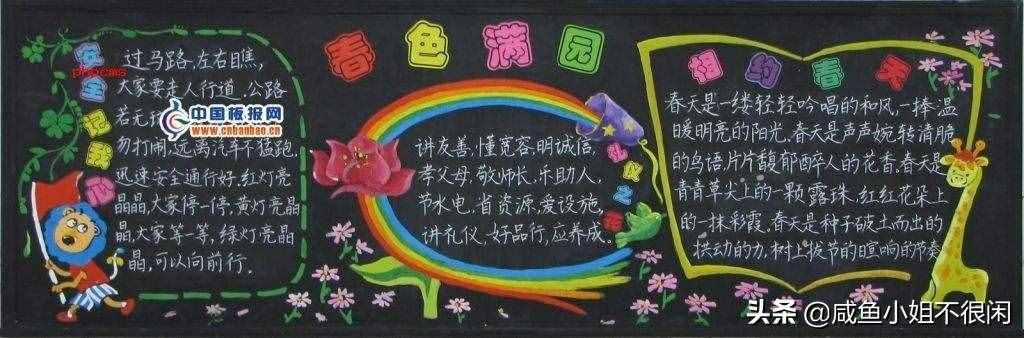 春色满园
安全记我心
过马路,左右瞧,
大家要走人行道,公路
若无
勿打闹,远离汽车不猛跑,
迅速安全通行好,红灯亮
晶晶,大家停一停,黄灯亮晶
晶,大家等一等,绿灯亮晶
晶,可以向前行.
phpcms
中国板报网
www.cnbanbao.cn
讲友善,懂宽容,明诚信,
孝父母,敬师长,乐助人,
节水电,省资源,爱设施,
讲礼仪,好品行,应养成。
礼仪之花
相约春天
春天是一缕轻轻吟唱的和风,一捧温
暖明亮的阳光,春天是声声婉转清脆
的鸟语,片片馥郁醉人的花香,春天是
青青草尖上的一颗露珠,红红花朵上
的一抹彩霞,春天是种子破土而出的
拱动的力,树上拔节的喧响的节奏
头条 @咸鱼小姐不很闲